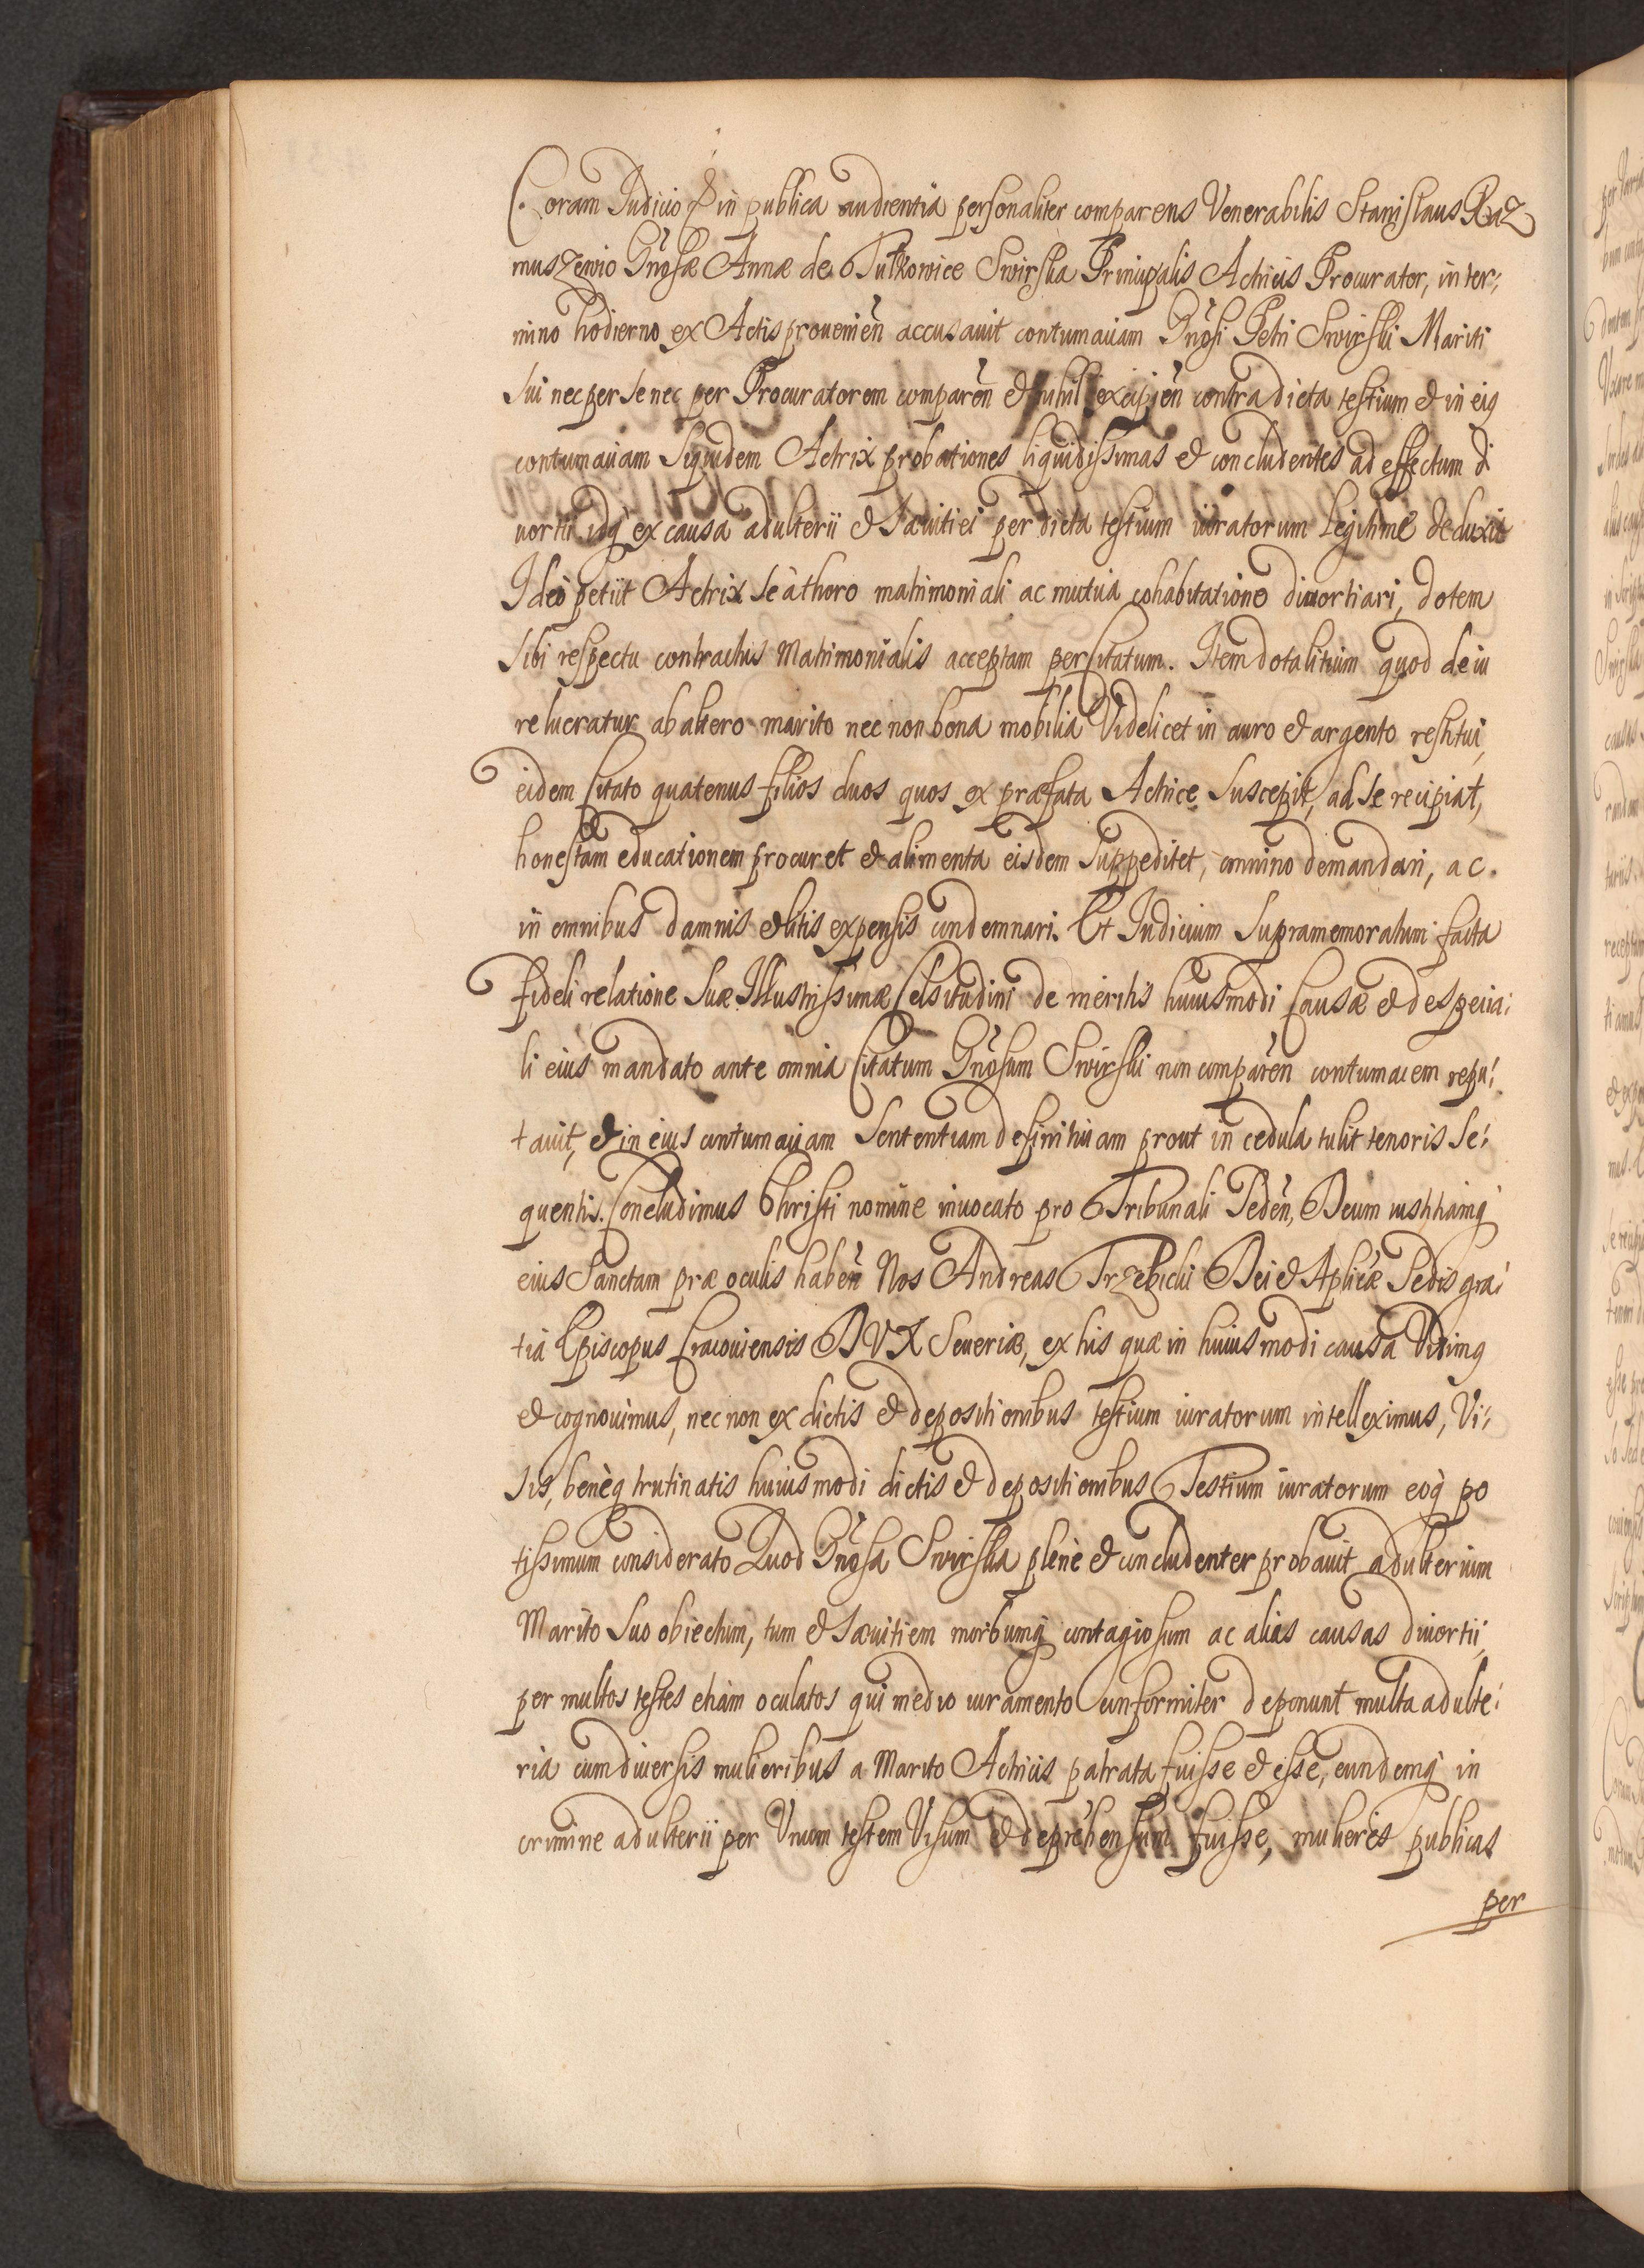 Coram Iudicio & in publica audientia personaliter comparens Venerabilis Stanislaus Raz
muszewic Gnosæ Annæ de Tulkowice Swirska Principalis Actricis Procurator, in ter,
mino hodierno ex Actis prouenien accusauit contumaciam Gnosi Petri Swirski Mariti
sui nec per se nec per Procuratorem comparen & nihil excipien contra dicta testium & in eiq
contumaciam siquidem Actrix probationes liquidissimas & concludentes ad effectum di
uortii idq ex causa adulterii & sæuitiei per dicta testium iuratorum legitime deduxit
Ideo petiit Actrix se à thoro matrimoniali ac mutua cohabitatione diuortiari, dotem
sibi respectu contractus Matrimonialis acceptam per Citatum. Item dotalitium quod de iu
re lucratur ab altero marito nec non bona mobilia Videlicet in auro & argento restitui,
eidem Citato quatenus filios duos quos ex præfata Actrice suscepit, ad se recipiat,
honestam educationem procuret & alimenta eisdem suppeditet, omnino demandari, ac
in omnibus damnis & litis expensis condemnari. Et Iudicium supramemoratum facta
fideli relatione suæ Illustrissimæ Celsitudini de meritis huiusmodi causæ & de specia:
li eius mandato ante omnia Citatum Gnosum Swirski non comparen contumacem repu:
tauit, & in eius contumaciam sententiam definitiuam prout in cedula tulit tenoris se:
quentis. Concludimus Christi nomine inuocato pro Tribunali Seden, Deum iustitiamq
eius Sanctam præ oculis haben Nos Andreas Trzebicki Dei & Aplicæ Sedis gra:
tia Episcopus Cracouiensis DVX Seueriæ, ex his quæ in huiusmodi causa Vidimq
& cognouimus, nec non ex dictis & depositionibus testium iuratorum intelleximus, Vi:
sis, beneq trutinatis huiusmodi dictis & depositionibus Testium iuratorum eoq po
tissimum considerato Quod Gnosa Swirska plene & concludenter probauit adulterium
Marito suo obiectum, tum & sæuitiem morbumq contagiosum ac alias causas diuortii,
per multos testes etiam oculatos qui medio iuramento conformiter deponunt multa adulte:
ria cum diuersis mulieribus a Marito Actricis patrata fuisse & esse, eundemq in
crimine adulterii per Vnum testem Visum & deprehensum fuisse, mulieres publicas
per